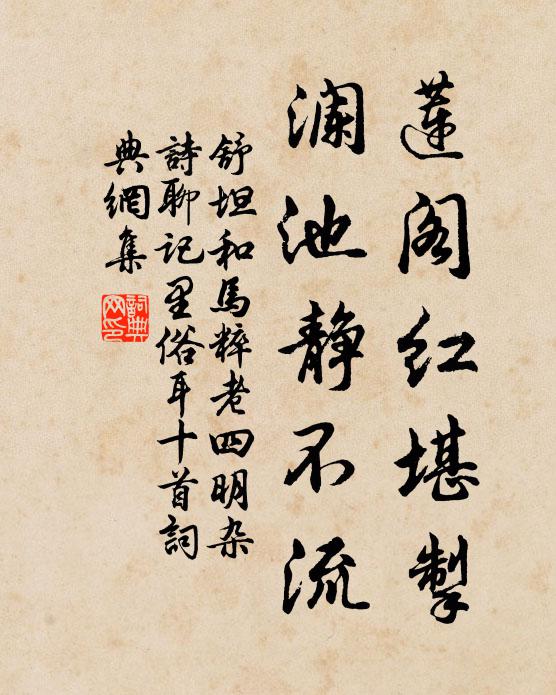 蓮阁红堪掣
澜池静不流
舒坦和馬粹老四明杂
詩聊记里俗耳十首詞
典網集
詞典网印